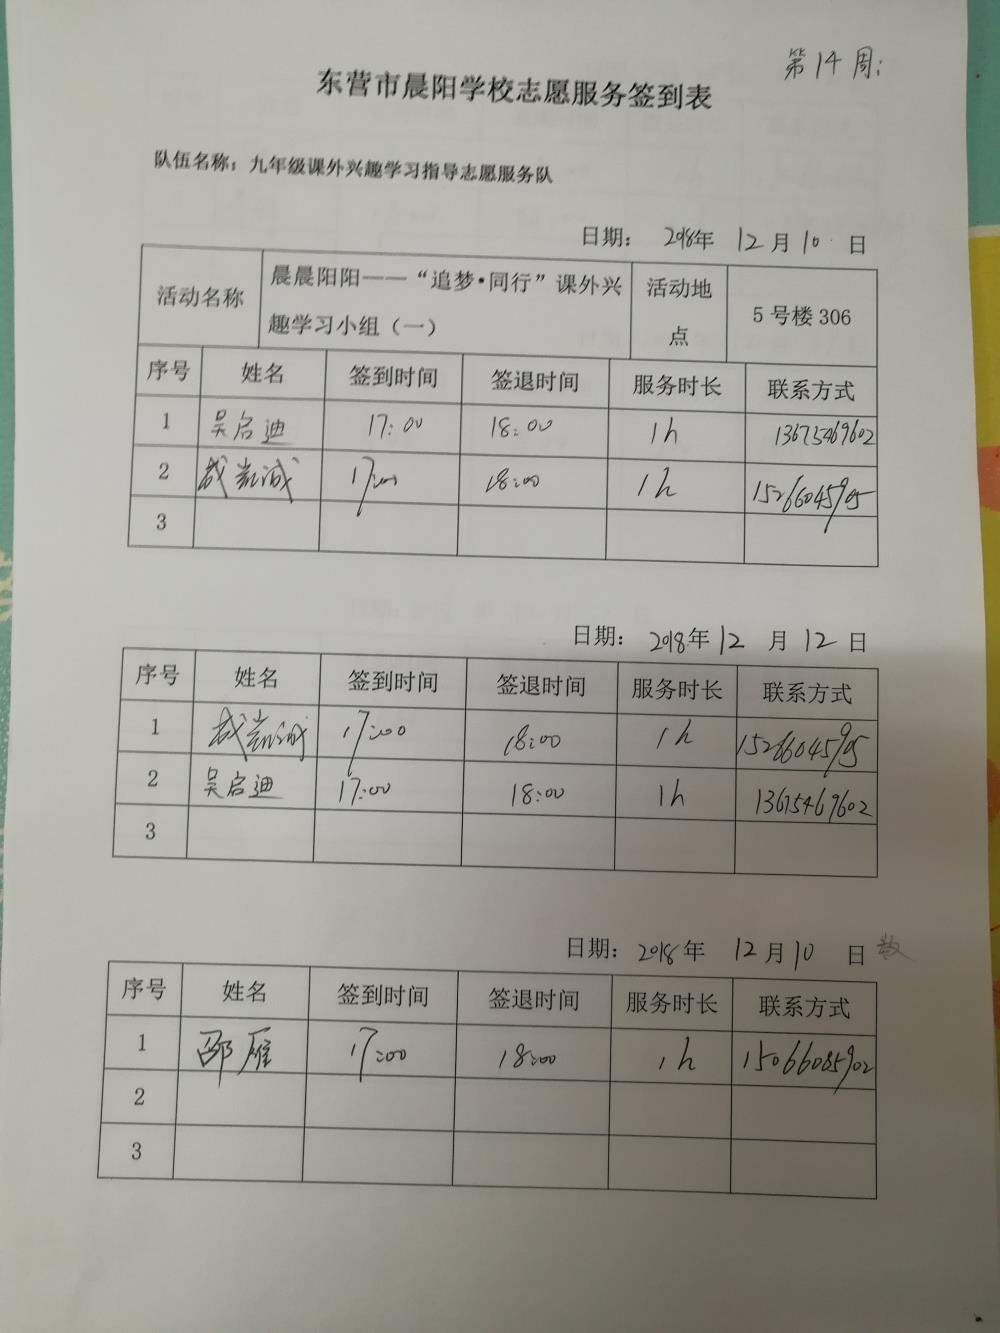 第14周:
东营市晨阳学校志愿服务签到表
队伍名称：九年级课外兴趣学习指导志愿服务队
日期： 2018年 12月10 日
活动名称 晨晨阳阳——“追梦•同行”课外兴趣学习小组（一） 活动地点 5号楼306
序号 姓名 签到时间 签退时间 服务时长 联系方式
1 吴启迪 17:00 18:00 1h 13675469602
2 17:00 18:00 1h 15266045905
3
日期： 2018年12 月12日
序号 姓名 签到时间 签退时间 服务时长 联系方式
1 17:00 18:00 1h 15266045905
2 吴启迪 17:00 18:00 1h 13675469602
3
日期：2018年 12月10 日
序号 姓名 签到时间 签退时间 服务时长 联系方式
1 邵雁 17:00 18:00 1h 15066085902
2
3